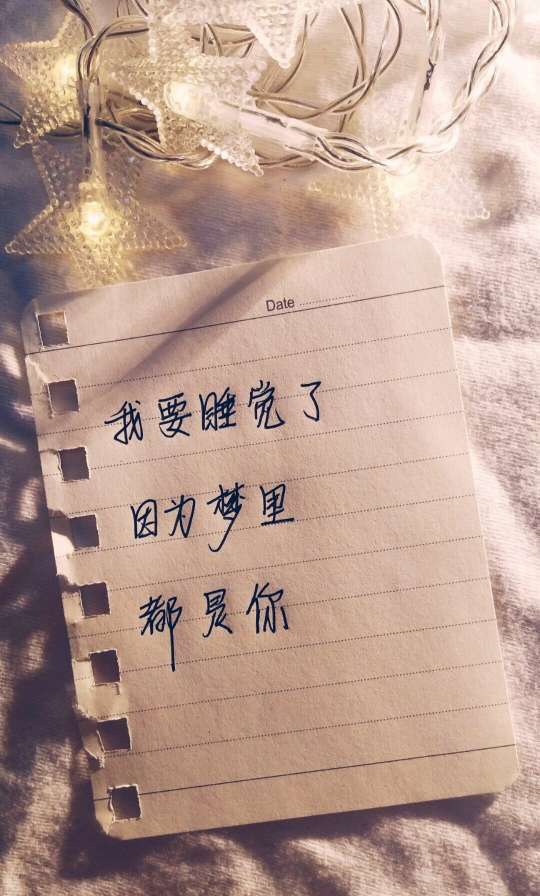 Date
我要睡觉了
因为梦里
都是你